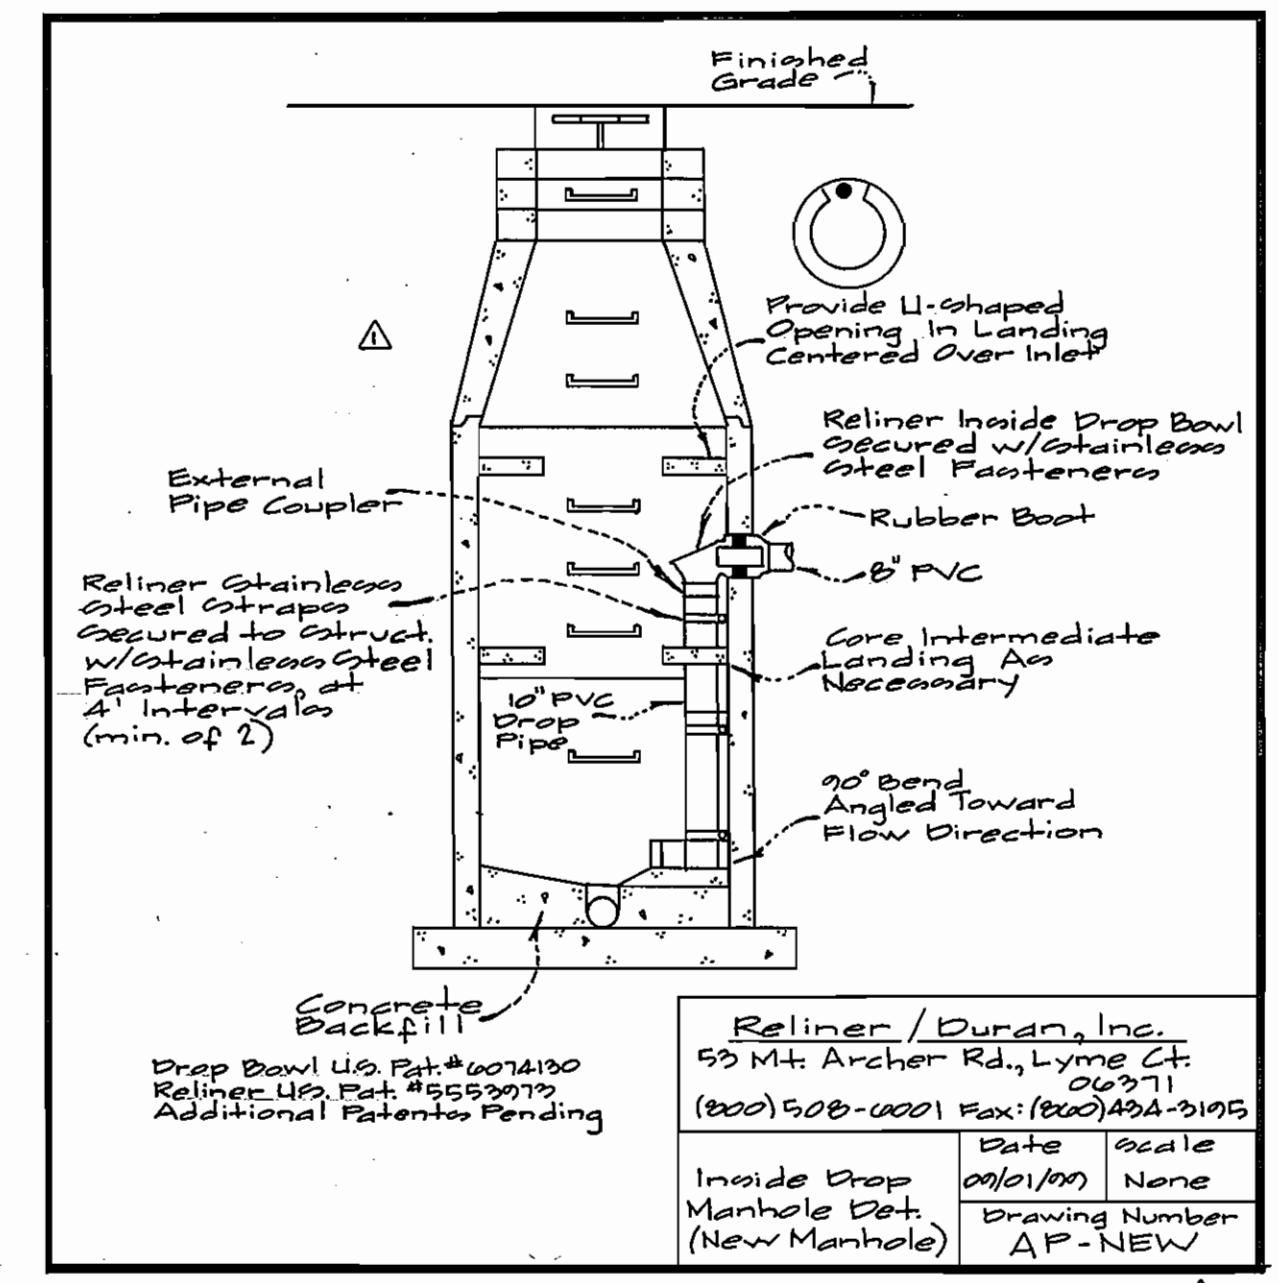 Finished
Grade
Provide U-Shaped
Opening In Landing
Centered Over Inlet
1
Reliner Inside Drop Bowl
Secured w/Stainless
Steel Fasteners
External
Pipe Coupler
Rubber Boot
8" PVC
Reliner Stainless
Steel Straps
Secured to Struct.
w/Stainless Steel
Fasteners, at
4' Intervals
(min. of 2)
Core Intermediate
Landing As
Necessary
10" PVC
Drop
Pipe
90° Bend
Angled Toward
Flow Direction
Concrete
Backfill
Drop Bowl U.S. Pat.#6074130
Reliner U.S. Pat. #5553973
Additional Patents Pending
Reliner / Duran, Inc.
53 Mt. Archer Rd., Lyme Ct.
06371
(800) 508-6001 Fax: (860) 434-3195
Inside Drop
Manhole Det.
(New Manhole)
Date
09/01/99
Scale
None
Drawing Number
AP-NEW